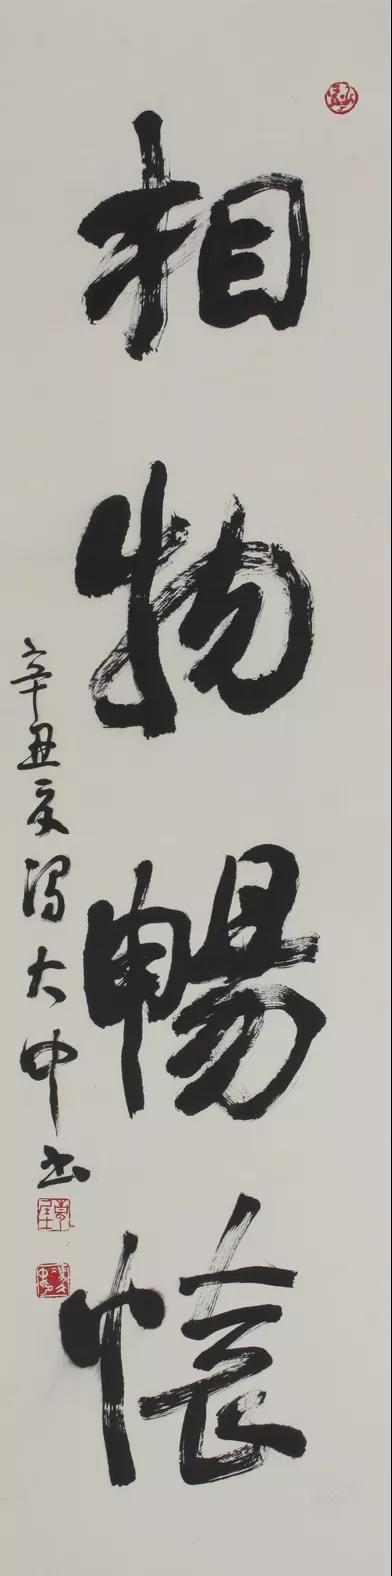 相物暢懷
辛丑夏馮大中书